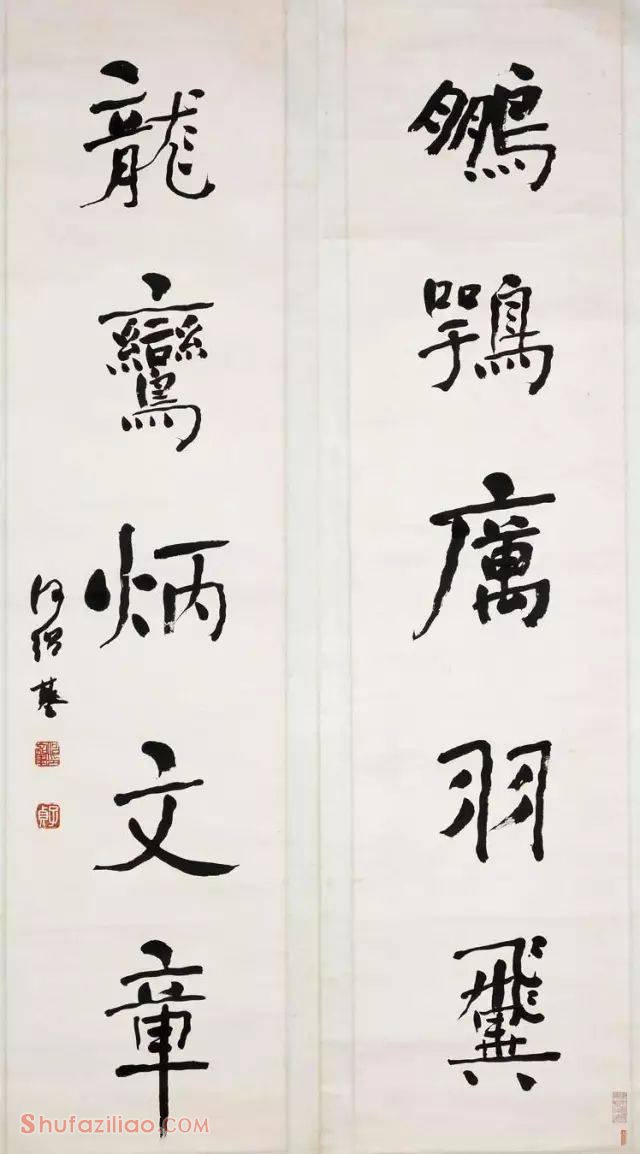 鵬鶚厲羽翼
龍鸞炳文章
何紹基
子貞
Shufaziliao.COM